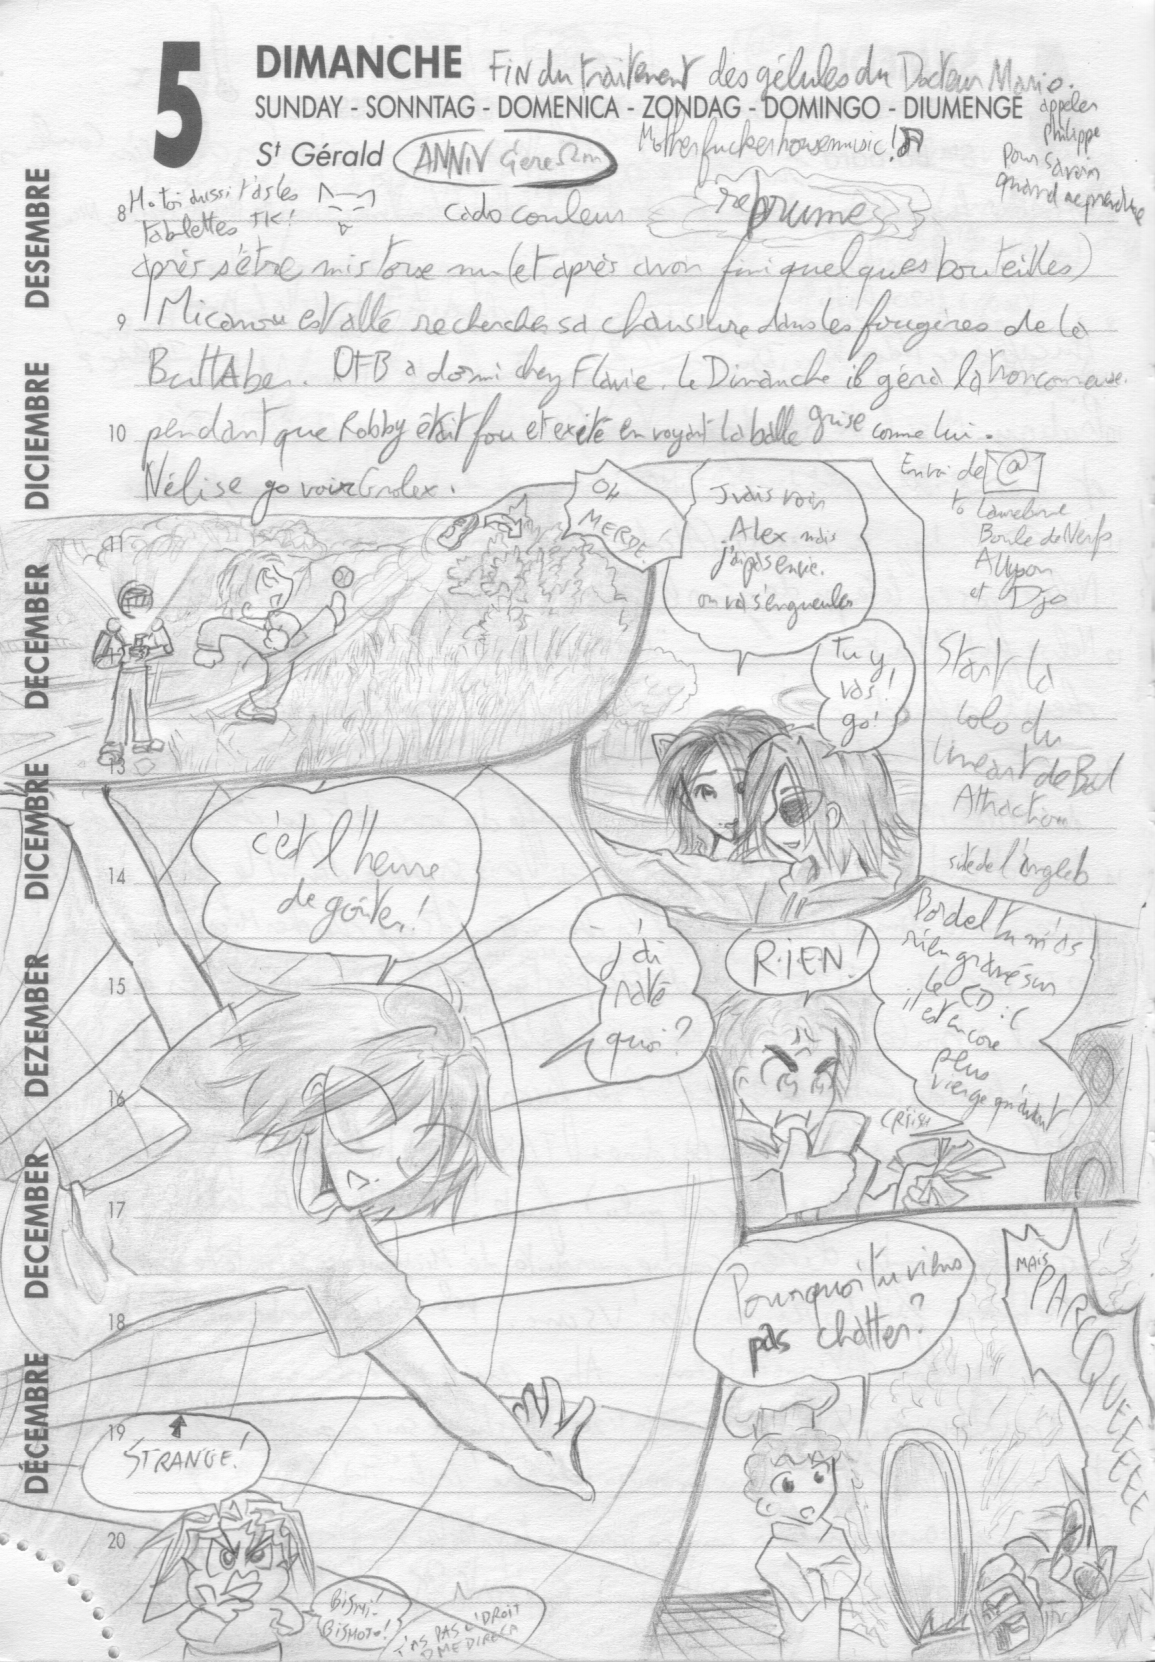 5
DIMANCHE
SUNDAY - SONNTAG - DOMENICA - ZONDAG - DOMINGO - DIUMENGE
St Gérald
Fin du traitement des gélules du Docteur Mario.
appeler
philippe
pour savoir
quand
ANNIV
Motherfuckerhousemusic!
toi aussi t'as les
tablettes TK!
cado couleur
brume
8
après s'être mis torse nu (et après avoir fini quelques bouteilles)
9
Micanou est allé rechercher sa chaussure dans les fougères de la
ButtAber. OFB a dormi chez Flavie. Le Dimanche il géra la tronconneuse.
10
pendant que Robby était fou et exité en voyant la balle grise comme lui.
Nélise go voir
Envoi de @
to
Boule de Nerfs
et Djo
Start la
colo du
lineart de Bad
Attraction
11
OH
MERDE!
J'vais voir
Alex mais
j'ai pas envie.
on va s'engueuler
Tu y
vas!
go!
13
c'est l'heure
de goûter!
14
15
16
17
18
19
20
j'ai
raté
quoi?
R.I.E.N!
Bordel tu m'as
rien gravé sur
le CD :(
il est encore
plus
vierge qu'avant
CRIISH
Pourquoi tu viens
pas chatter?
MAIS
PARCQUEEEEE
STRANGE!
BISMI-
BISMOTO!
T'AS PAS L'DROIT
DÉCEMBRE DECEMBER DEZEMBER DICEMBRE DECEMBER DICIEMBRE DESEMBRE